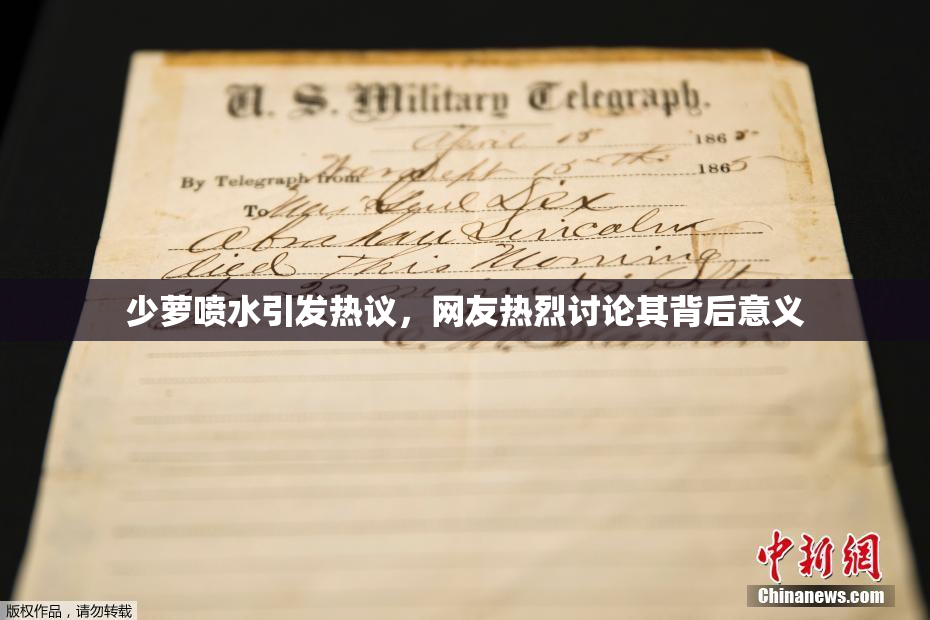 U. S. Military Telegraph.
April 15 1865
By Telegraph from War Dept 15th 1865
To Maj Genl Dix
Abraham Lincoln
died This Morning
22 minutes after
少萝喷水引发热议，网友热烈讨论其背后意义
中新网
Chinanews.com
版权作品，请勿转载